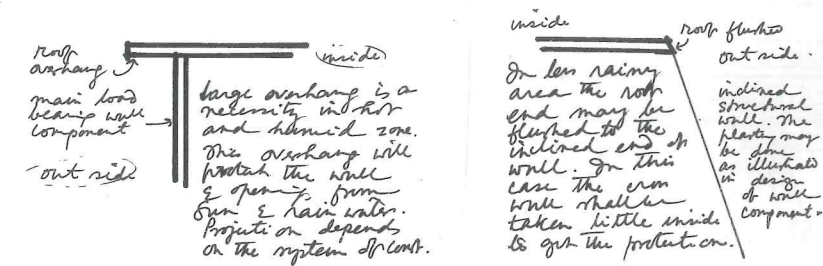 roof
overhang
main load
bearing wall
component
out side
inside
Large overhang is a
necessity in hot
and humid zone.
This overhang will
protect the wall
& opening from
Sun & rain water.
Projection depends
on the system of const.
inside
roof flushed
out side.
In less rainy
area the roof
end may be
flushed to the
inclined end of
wall. In this
case the
wall shall be
taken little inside
to get the protection.
inclined
structural
wall. The
may
be done
as illustrated
in design
of wall
component.